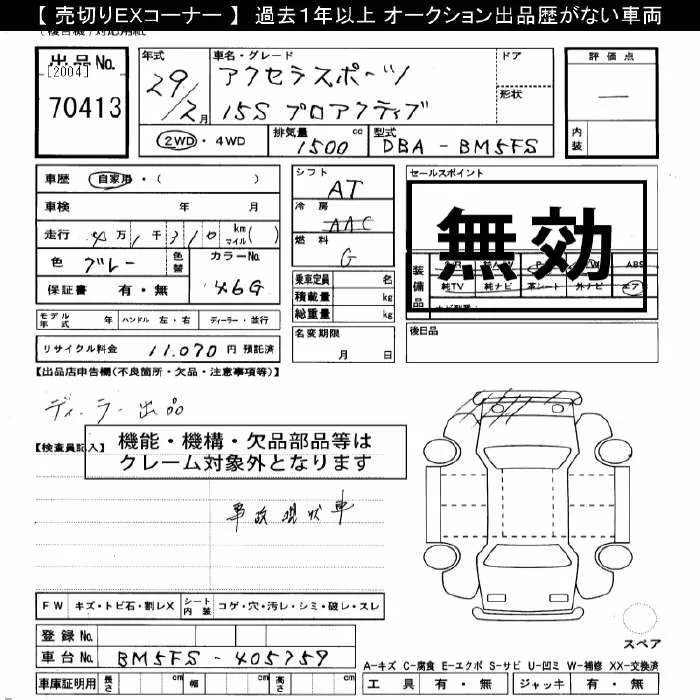 【 売切りEXコーナー 】 過去１年以上 オークション出品歴がない車両
出品No.
[2004]
70413
年式
29/2月
車名・グレード
アクセラスポーツ
15S プロアクティブ
ドア
形状
評価点
—
内装
2WD ・ 4WD
排気量
1500 cc
型式
DBA - BM5FS
車歴 自家用・( )
車検 年 月
走行 4万1千310 km マイル ( )
色 ブルー
色替
カラーNo.
46G
保証書 有・無
シフト
AT
冷房
AAC
燃料
G
乗車定員 名
積載量 kg
総重量 kg
セールスポイント
無効
装備品
ABS
純TV 純ナビ 革シート 外ナビ エアB
モデル年式 年 ハンドル 左・右 ディーラー・並行
名変期限
月 日
後日品
リサイクル料金 11,070 円 預託済
【出品店申告欄(不良箇所・欠品・注意事項等)】
ディーラー出品
【検査員記入】
機能・機構・欠品部品等は
クレーム対象外となります
事故現状車
FW キズ・トビ石・割レX シート内装 コゲ・穴・汚レ・シミ・破レ・スレ
登録No.
車台No. BM5FS - 405759
車庫証明用 長さ cm 幅 cm 高さ cm
スペア
A-キズ C-腐食 E-エクボ S-サビ U-凹ミ W-補修 XX-交換済
工具 有・無 ジャッキ 有・無